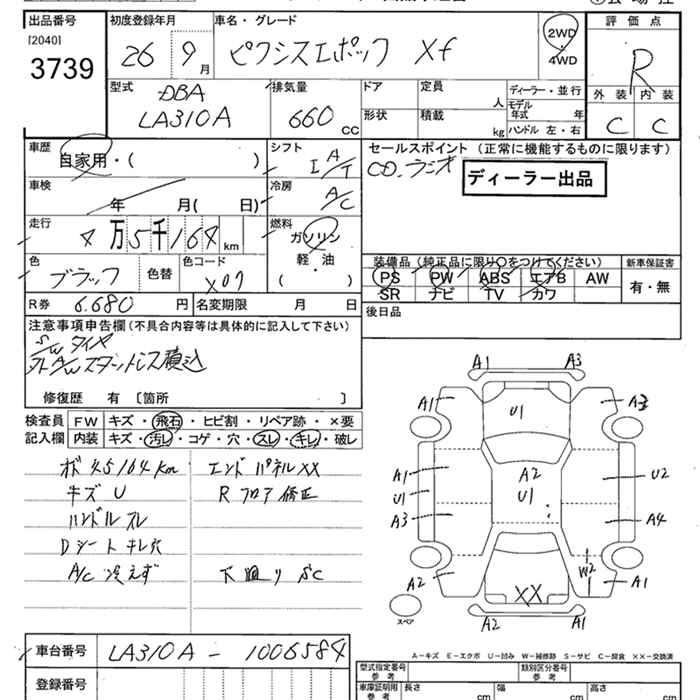 出品番号 初度登録年月 車名・グレード 評価点
[2040]
3739
26 9月 ピクシスエポック Xf 2WD・4WD R
型式 排気量 ドア 定員 人 ディーラー・並行
DBA
LA310A 660 CC
形状 積載 kg モデル年式 年
ハンドル 左・右
外装 内装
C C
車歴 自家用・( ) シフト I A/T
セールスポイント (正常に機能するものに限ります)
CD.ラジオ
ディーラー出品
車検 年 月( 日) 冷房 A/C
走行 4万5千164km 燃料 ガソリン
軽・油
( )
色 ブラック 色替 色コード X07
装備品(純正品に限り○をつけてください) 新車保証書
PS PW ABS エアB AW 有・無
SR ナビ TV カワ
R券 6.680円 名変期限 月 日
後日品
注意事項申告欄(不具合内容等は具体的に記入して下さい)
S/W タイヤ
外A/Wスタットレス積込
修復歴 有 〔箇所 〕
検査員 記入欄
FW キズ・飛石・ヒビ割・リペア跡・×要
内装 キズ・汚レ・コゲ・穴・スレ・キレ・破レ
メ 45164km エンドパネルXX
キズ U R フロア修正
ハンドルスレ
Dシートキレ穴
A/C 冷えず 下廻り SC
A1 A3
A1 U1 A3
A1 A2 U2
U1 U1
A3 A4
W2
A2 XX A1
スペア A2 A1
A-キズ E-エクボ U-凹み W-補修跡 S-サビ C-腐食 XX-交換済
車台番号 LA310A-1006584
登録番号
型式指定番号 参考 類別区分番号 参考
車庫証明用 参考 長さ cm 幅 cm 高さ cm